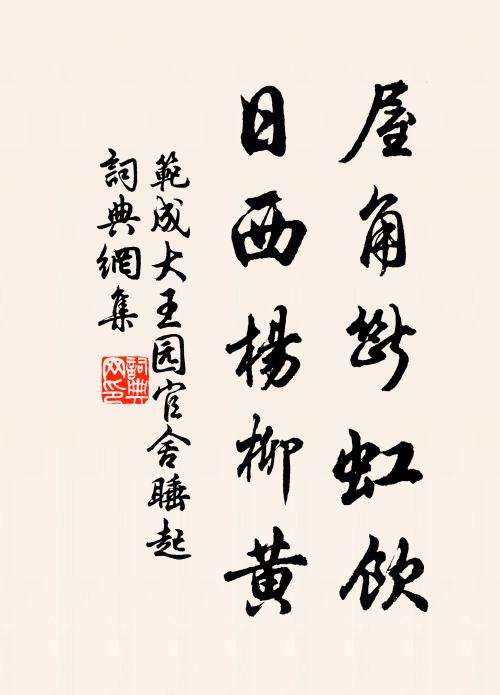 屋角斷虹飲
日西楊柳黃
範成大王园官舍睡起
詞典網集
詞典网印